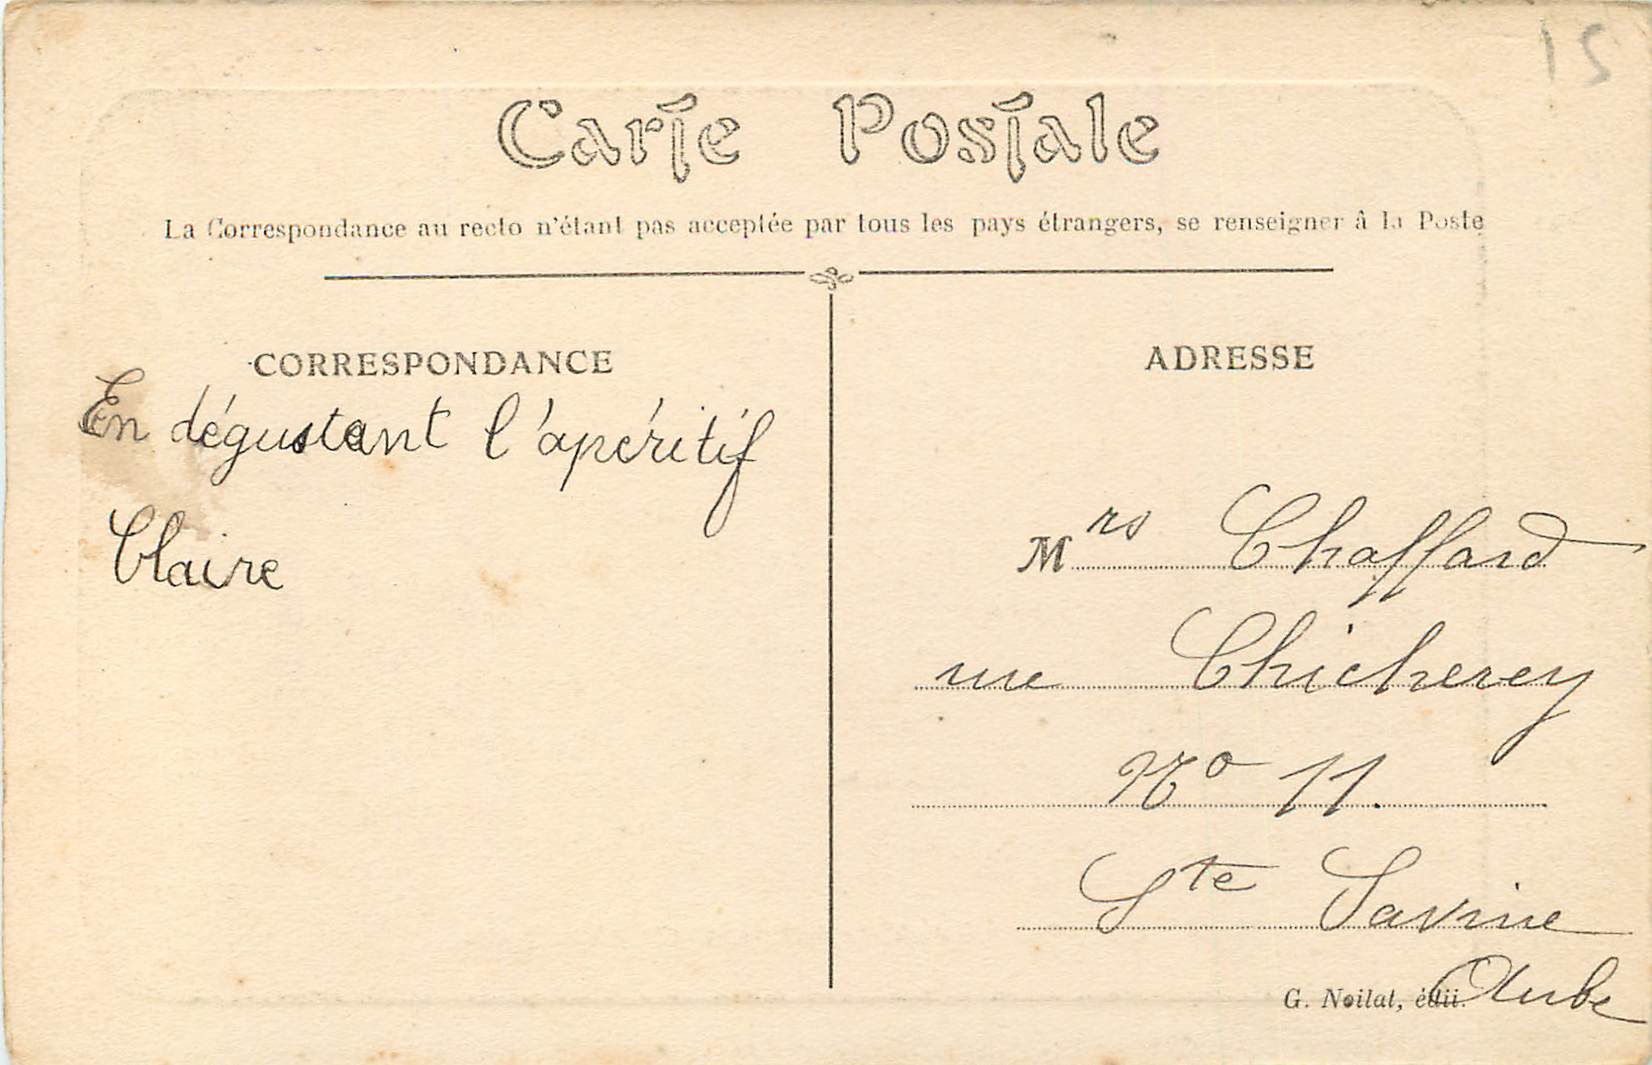 15
Carte Postale
La Correspondance au recto n'étant pas acceptée par tous les pays étrangers, se renseigner à la Poste
CORRESPONDANCE
En dégustant l'apéritif
Claire
ADRESSE
Mrs Chaffard
rue Chicherey
No 11.
Ste Savine
Aube
G. Noilat, édit.